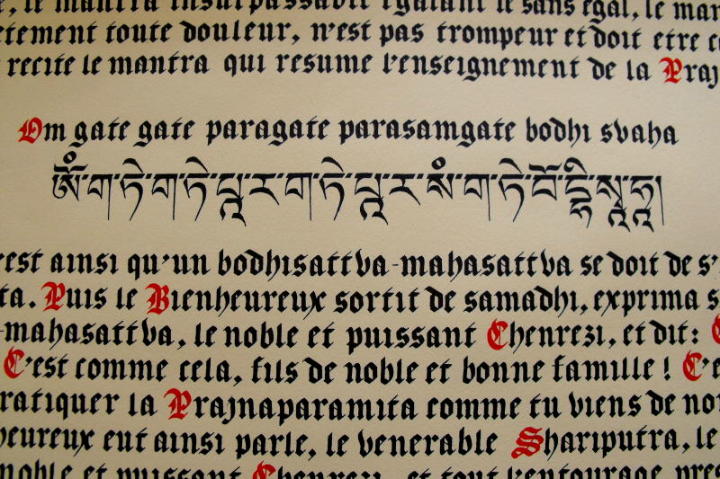 , le mantra insurpassable egalant le sans egal, le man
etement toute douleur, n'est pas trompeur et doit etre c
recite le mantra qui resume l'enseignement de la Praj
Om gate gate paragate parasamgate bodhi svaha
ཨོཾ་ག་ཏེ་ག་ཏེ་པཱ་ར་ག་ཏེ་པཱ་ར་སཾ་ག་ཏེ་བོ་དྷི་སྭཱ་ཧཱ།
'est ainsi qu'un bodhisattva-mahasattva se doit de s'
ta. Puis le Bienheureux sortit de samadhi, exprima s
-mahasattva, le noble et puissant Chenrezi, et dit:
C'est comme cela, fils de noble et bonne famille ! C'e
ratiquer la Prajnaparamita comme tu viens de no
heureux eut ainsi parle, le venerable Shariputra, le
noble et puissant Chenrezi, et tout l'entourage, pres